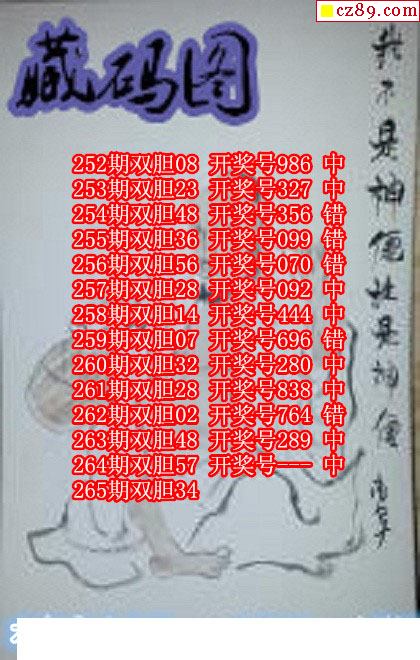 cz89.com
藏码图
252期双胆08 开奖号986 中
253期双胆23 开奖号327 中
254期双胆48 开奖号356 错
255期双胆36 开奖号099 错
256期双胆56 开奖号070 错
257期双胆28 开奖号092 中
258期双胆14 开奖号444 中
259期双胆07 开奖号696 错
260期双胆32 开奖号280 中
261期双胆28 开奖号838 中
262期双胆02 开奖号764 错
263期双胆48 开奖号289 中
264期双胆57 开奖号--- 中
265期双胆34
我不是神僊
是神僊